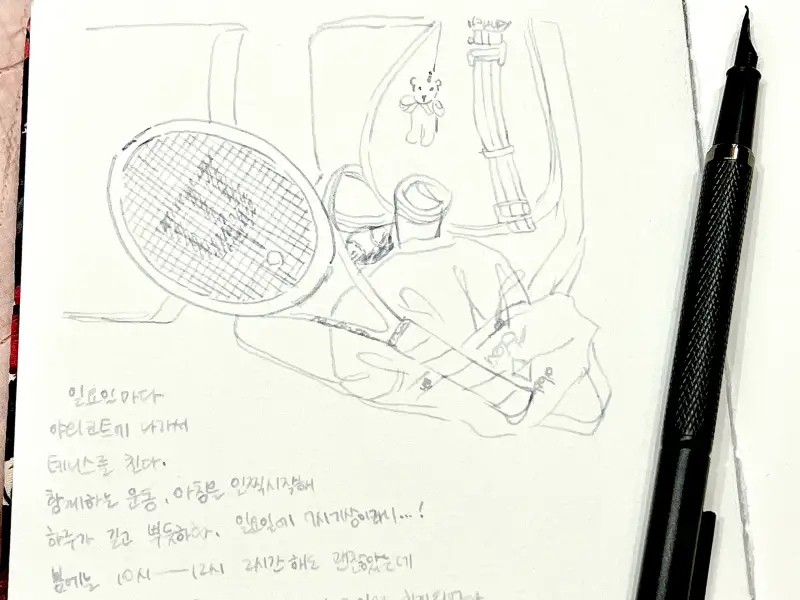 일요일마다
야외코트에 나가서
테니스를 친다.
함께하는 운동, 아침을 일찍 시작해
하루가 길고 뿌듯하다. 일요일에 7시 기상이라니...!
봄에는 10시 — 12시 2시간 해도 괜찮았는데